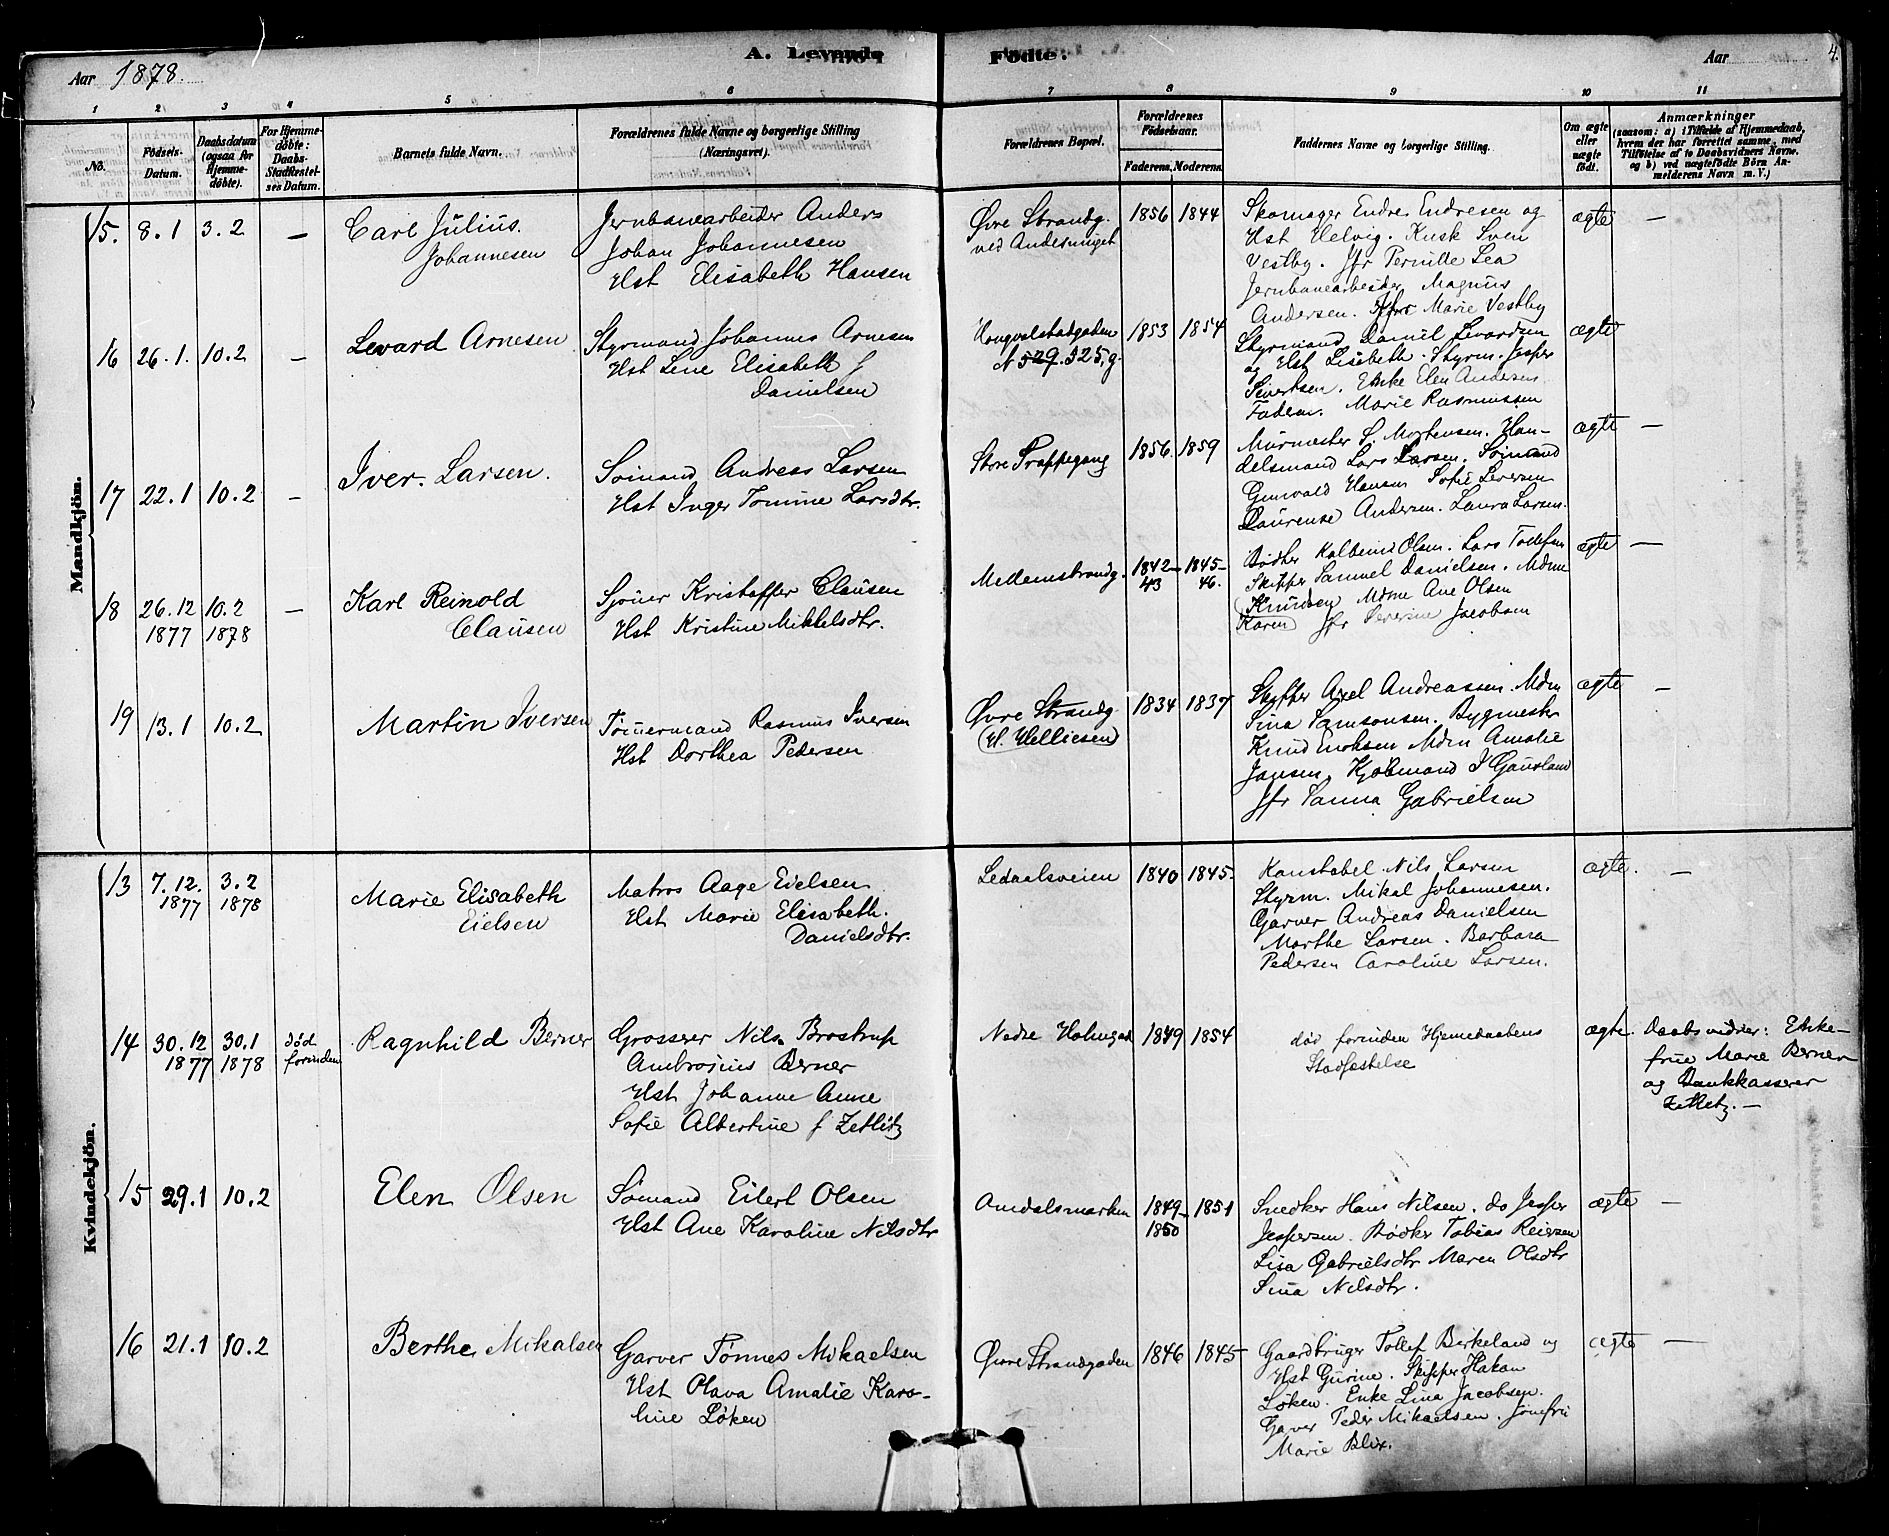 Aar 1878.
A. Levende Fødte.
Aar
4.
1 2 3 4 5 6 7 8 9 10 11
No.
Fødsels-Datum.
Daabsdatum (ogsaa for Hjemmedøbte).
For Hjemmedøbte: Daabs-Stadfæstelses Datum.
Barnets fulde Navn.
Forældrenes fulde Navne og borgerlige Stilling (Næringsvei).
Forældrenes Bopæl.
Forældrenes Fødselsaar.
Faderens. Moderens.
Faddernes Navne og borgerlige Stilling.
Om ægte eller uægte født.
Anmærkninger
(saasom: a) i Tilfælde af Hjemmedaab, hvem der har forrettet samme, med Tilføielse af to Daabsvidners Navne, og b) ved uægtefødte Børn Anmelderens Navn m. V.)
Mandkjön.
15. 8.1 3.2 —
Carl Julius
Johannesen
Jernbanearbeider Anders
Johan Johannesen
Hst Elisabeth Hansen
Øvre Strandg.
ved
1856 1844
Skomager Endre Endresen og
Hst Helvig. Kusk Sven
Vestby. Jfr Pernille Lea
Jernbanearbeider Magnus
Andersen. Jfr Marie Vestby
ægte —
16 26.1. 10.2 —
Levard Arnesen
Styrmand Johannes Arnesen
Hst Lene Elisabeth f
Danielsen
N 529. 325, g.
1853 1854
Styrmand Daniel Levardsen
og Hst Lisabeth. Styrm. Jesper
Sivertsen. Enke Elen Andersen
Faderen. Marie Rasmussen
ægte —
17 22.1 10.2 —
Iver Larsen.
Sømand Andreas Larsen
Hst Inger Tomine Larsdtr.
Store Trappegang
1856 1859
Murmester S. Mortensen. Han-
delsmand Lars Larsen. Sømand
Gunvald Hansen Sofie Seversen
Laurense Andersen. Laura Larsen.
ægte —
18 26.12 1877 10.2 1878 —
Karl Reinold
Clausen
Sjouer Kristoffer Clausen
Hst Kristine Mikkelsdtr.
Mellemstrandg.
1842-43 1845-46.
Bødker Kolbein Olsen. Lars Tollefsen
Skipper Samuel Danielsen. Mdme
(Knudsen Mdme Ane Olsen
Karen) Jfr Severine Jacobsen
ægte —
19 13.1 10.2
Martin Iversen
Tømmermand Rasmus Iversen
Hst Dorthea Pedersen
Øvre Strandg.
(H. Helliesen)
1834 1837
Skipper Axel Andreassen. Mdm
Sina Samsonsen. Bygmester
Knud Mdm Amalie
Jansen. Kjøbmand J Gausland
Jfr Sanna Gabrielsen
ægte —
Kvindekjön.
13 7.12. 1877 3.2 1878
Marie Elisabeth
Eielsen
Matros Aage Eielsen
Hst Marie Elisabeth.
Danielsdtr.
Ledaalsveien
1840 1845.
Konstabel Nils Larsen
Styrm. Mikal Johannesen.
Garver Andreas Danielsen
Marthe Larsen. Barbara
Pedersen Caroline Larsen.
ægte. —
14 30.12 1877 30.1 1878 død forinden
Ragnhild Berner
Grosserer Nils Brostrup
Ambrosius Berner
Hst Johanne Anne
Sofie Albertine f Zetlitz
Nedre Holmegad
1849 1854
død forinden Hjemedaabens
Stadfæstelse
ægte. Daabsvidner: Enke-
frue Marie Berner
og Bankkasserer
Zetlitz. —
15 29.1 10.2
Elen Olsen
Sømand Eilert Olsen
Hst Ane Karoline Nilsdtr
Omdalsmarken
1849-1850 1851
Snedker Hans Nilsen. do Jesper
Jespersen. Bødker Tobias Reiersen
Lisa Gabrielsdtr Maren Olsdtr
Sina Nilsdtr.
ægte —
16 21.1 10.2
Berthe Mikalsen
Garver Tønnes Mikaelsen
Hst Olava Amalie Karo-
line Løken
Øvre Strandgaden
1846 1845
Gaardbruger Tollef Birkeland og
Hst Gurine. Skipper Hakon
Løken. Enke Lina Jacobsen.
Garver Peder Mikaelsen. Jomfru
Marie Blix.
ægte —